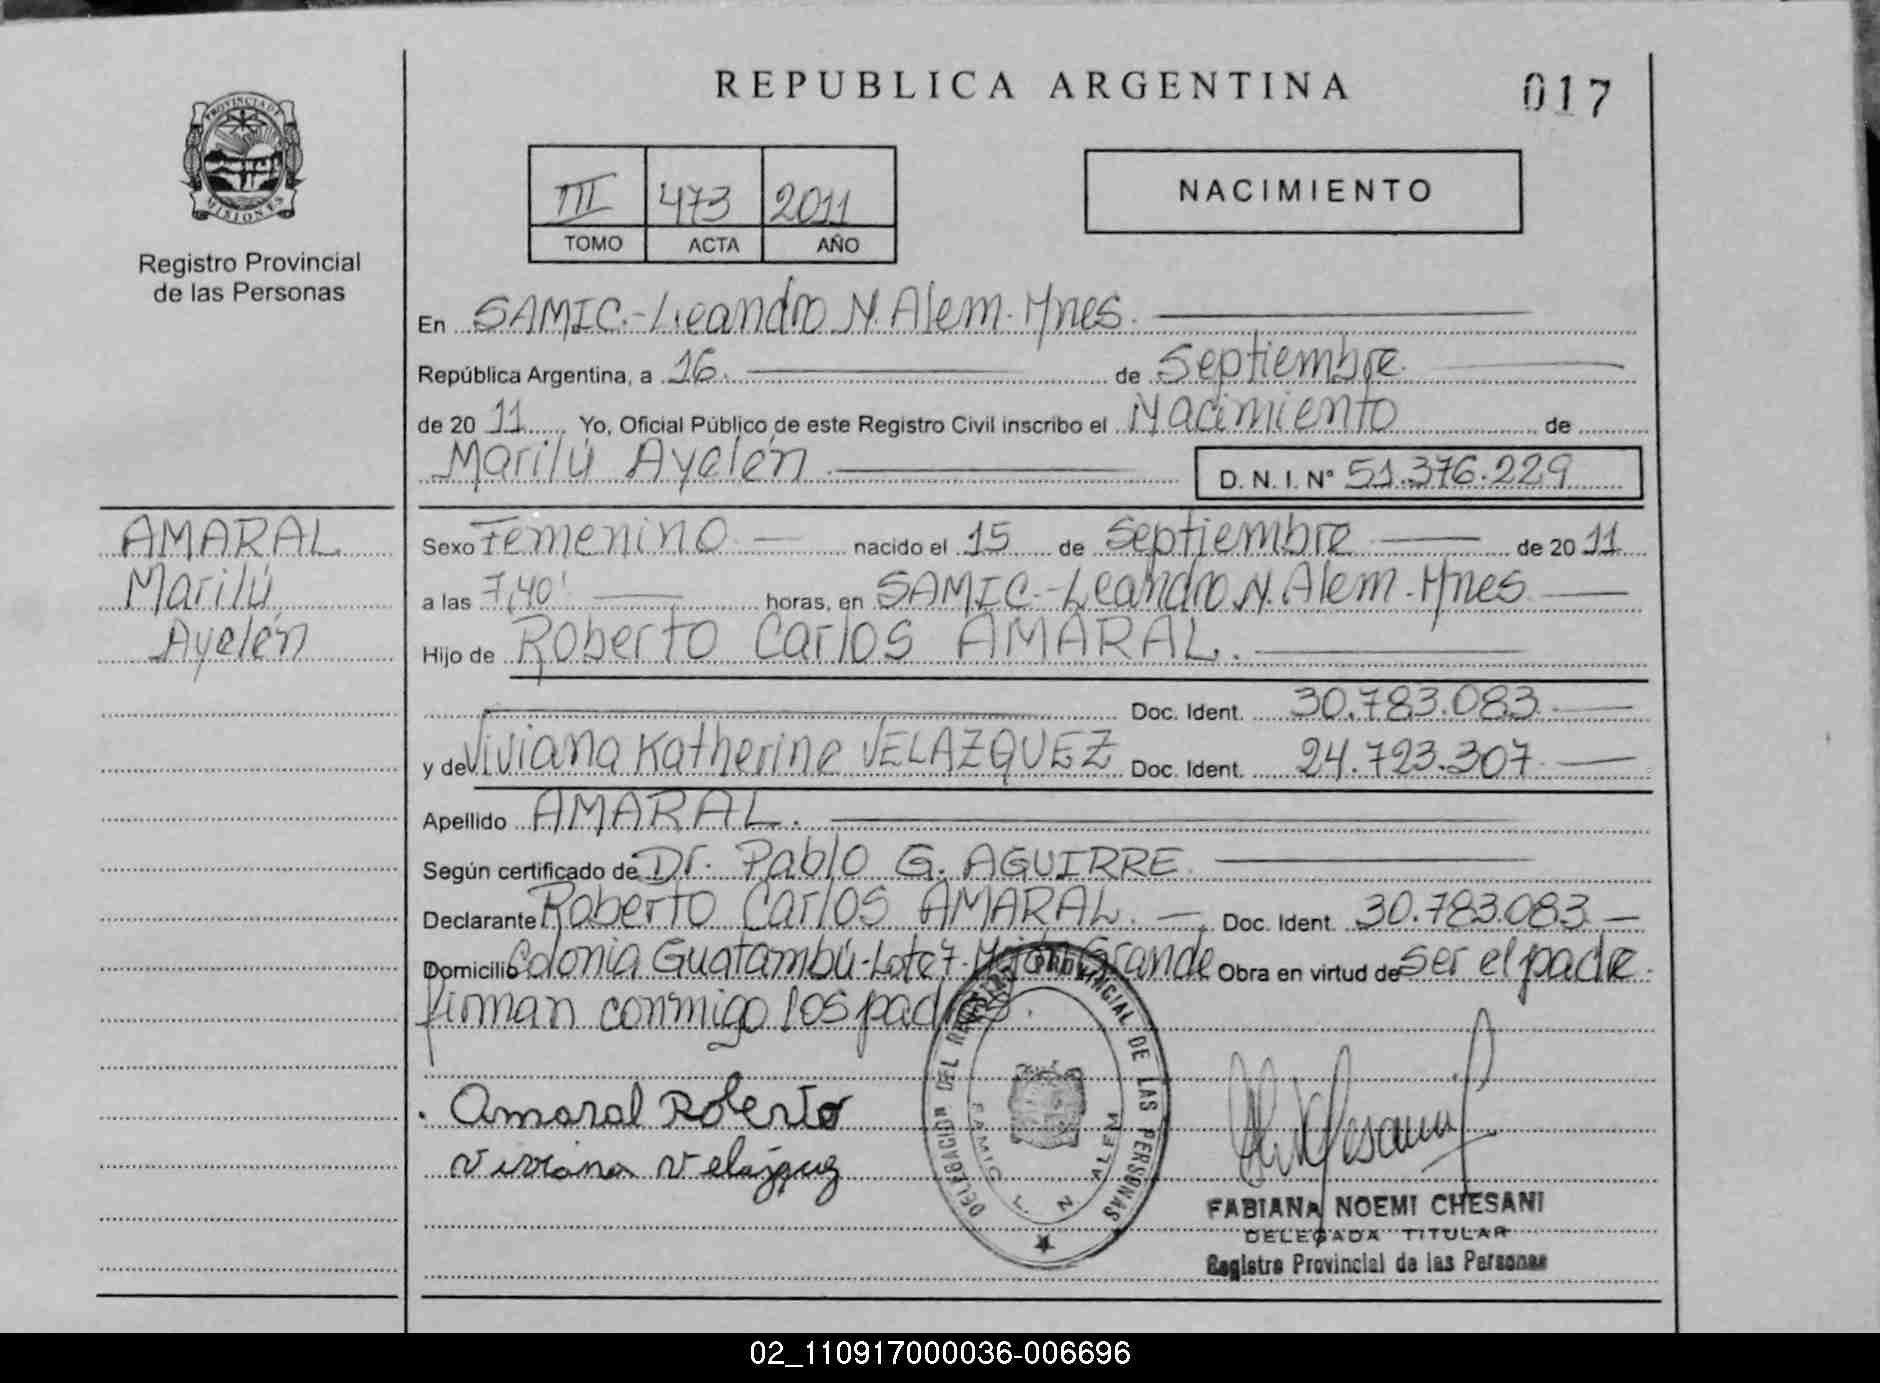 REPUBLICA ARGENTINA
017
PROVINCIA DE
MISIONES
Registro Provincial
de las Personas
III 473 2011
TOMO ACTA AÑO
NACIMIENTO
En SAMIC.-Leandro N. Alem. Mnes.
República Argentina, a 16. de Septiembre
de 2011 Yo, Oficial Público de este Registro Civil inscribo el Nacimiento de
Marilú Ayelén
D. N. I. N° 51.376.229
AMARAL
Marilú
Ayelén
Sexo Femenino nacido el 15 de Septiembre de 2011
a las 7,40' horas, en SAMIC.-Leandro N. Alem.-Mnes
Hijo de Roberto Carlos AMARAL.
Doc. Ident. 30.783.083.
y de Viviana Katherine VELAZQUEZ Doc. Ident. 24.723.307.
Apellido AMARAL.
Según certificado de Dr. Pablo G. AGUIRRE.
Declarante Roberto Carlos AMARAL. Doc. Ident. 30.783.083.
Domicilio Colonia Guatambú-Lote 7- Grande Obra en virtud de ser el padre.
firman conmigo los padres.
Amaral Roberto
Viviana Velazquez
DELEGACION DEL REGISTRO PROVINCIAL DE LAS PERSONAS
SAMIC L. N ALEM
FABIANA NOEMI CHESANI
DELEGADA TITULAR
Registro Provincial de las Personas
02_110917000036-006696